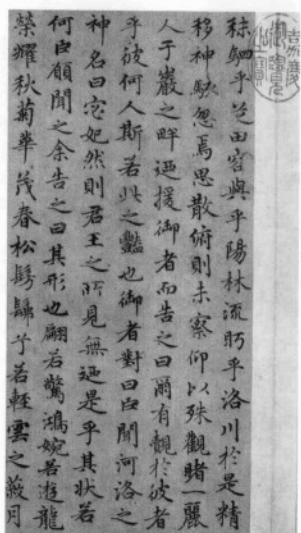 秣駟乎芝田容與乎陽林流眄乎洛川於是精
移神駭忽焉思散俯則未察仰以殊觀睹一麗
人于巖之畔迺援御者而告之曰爾有覿於彼者
乎彼何人斯若此之豔也御者對曰臣聞河洛之
神名曰宓妃然則君王之所見無迺是乎其狀若
何臣願聞之余告之曰其形也翩若驚鴻婉若遊龍
榮耀秋菊華茂春松髣髴兮若輕雲之蔽月
嘉慶御覽之寶